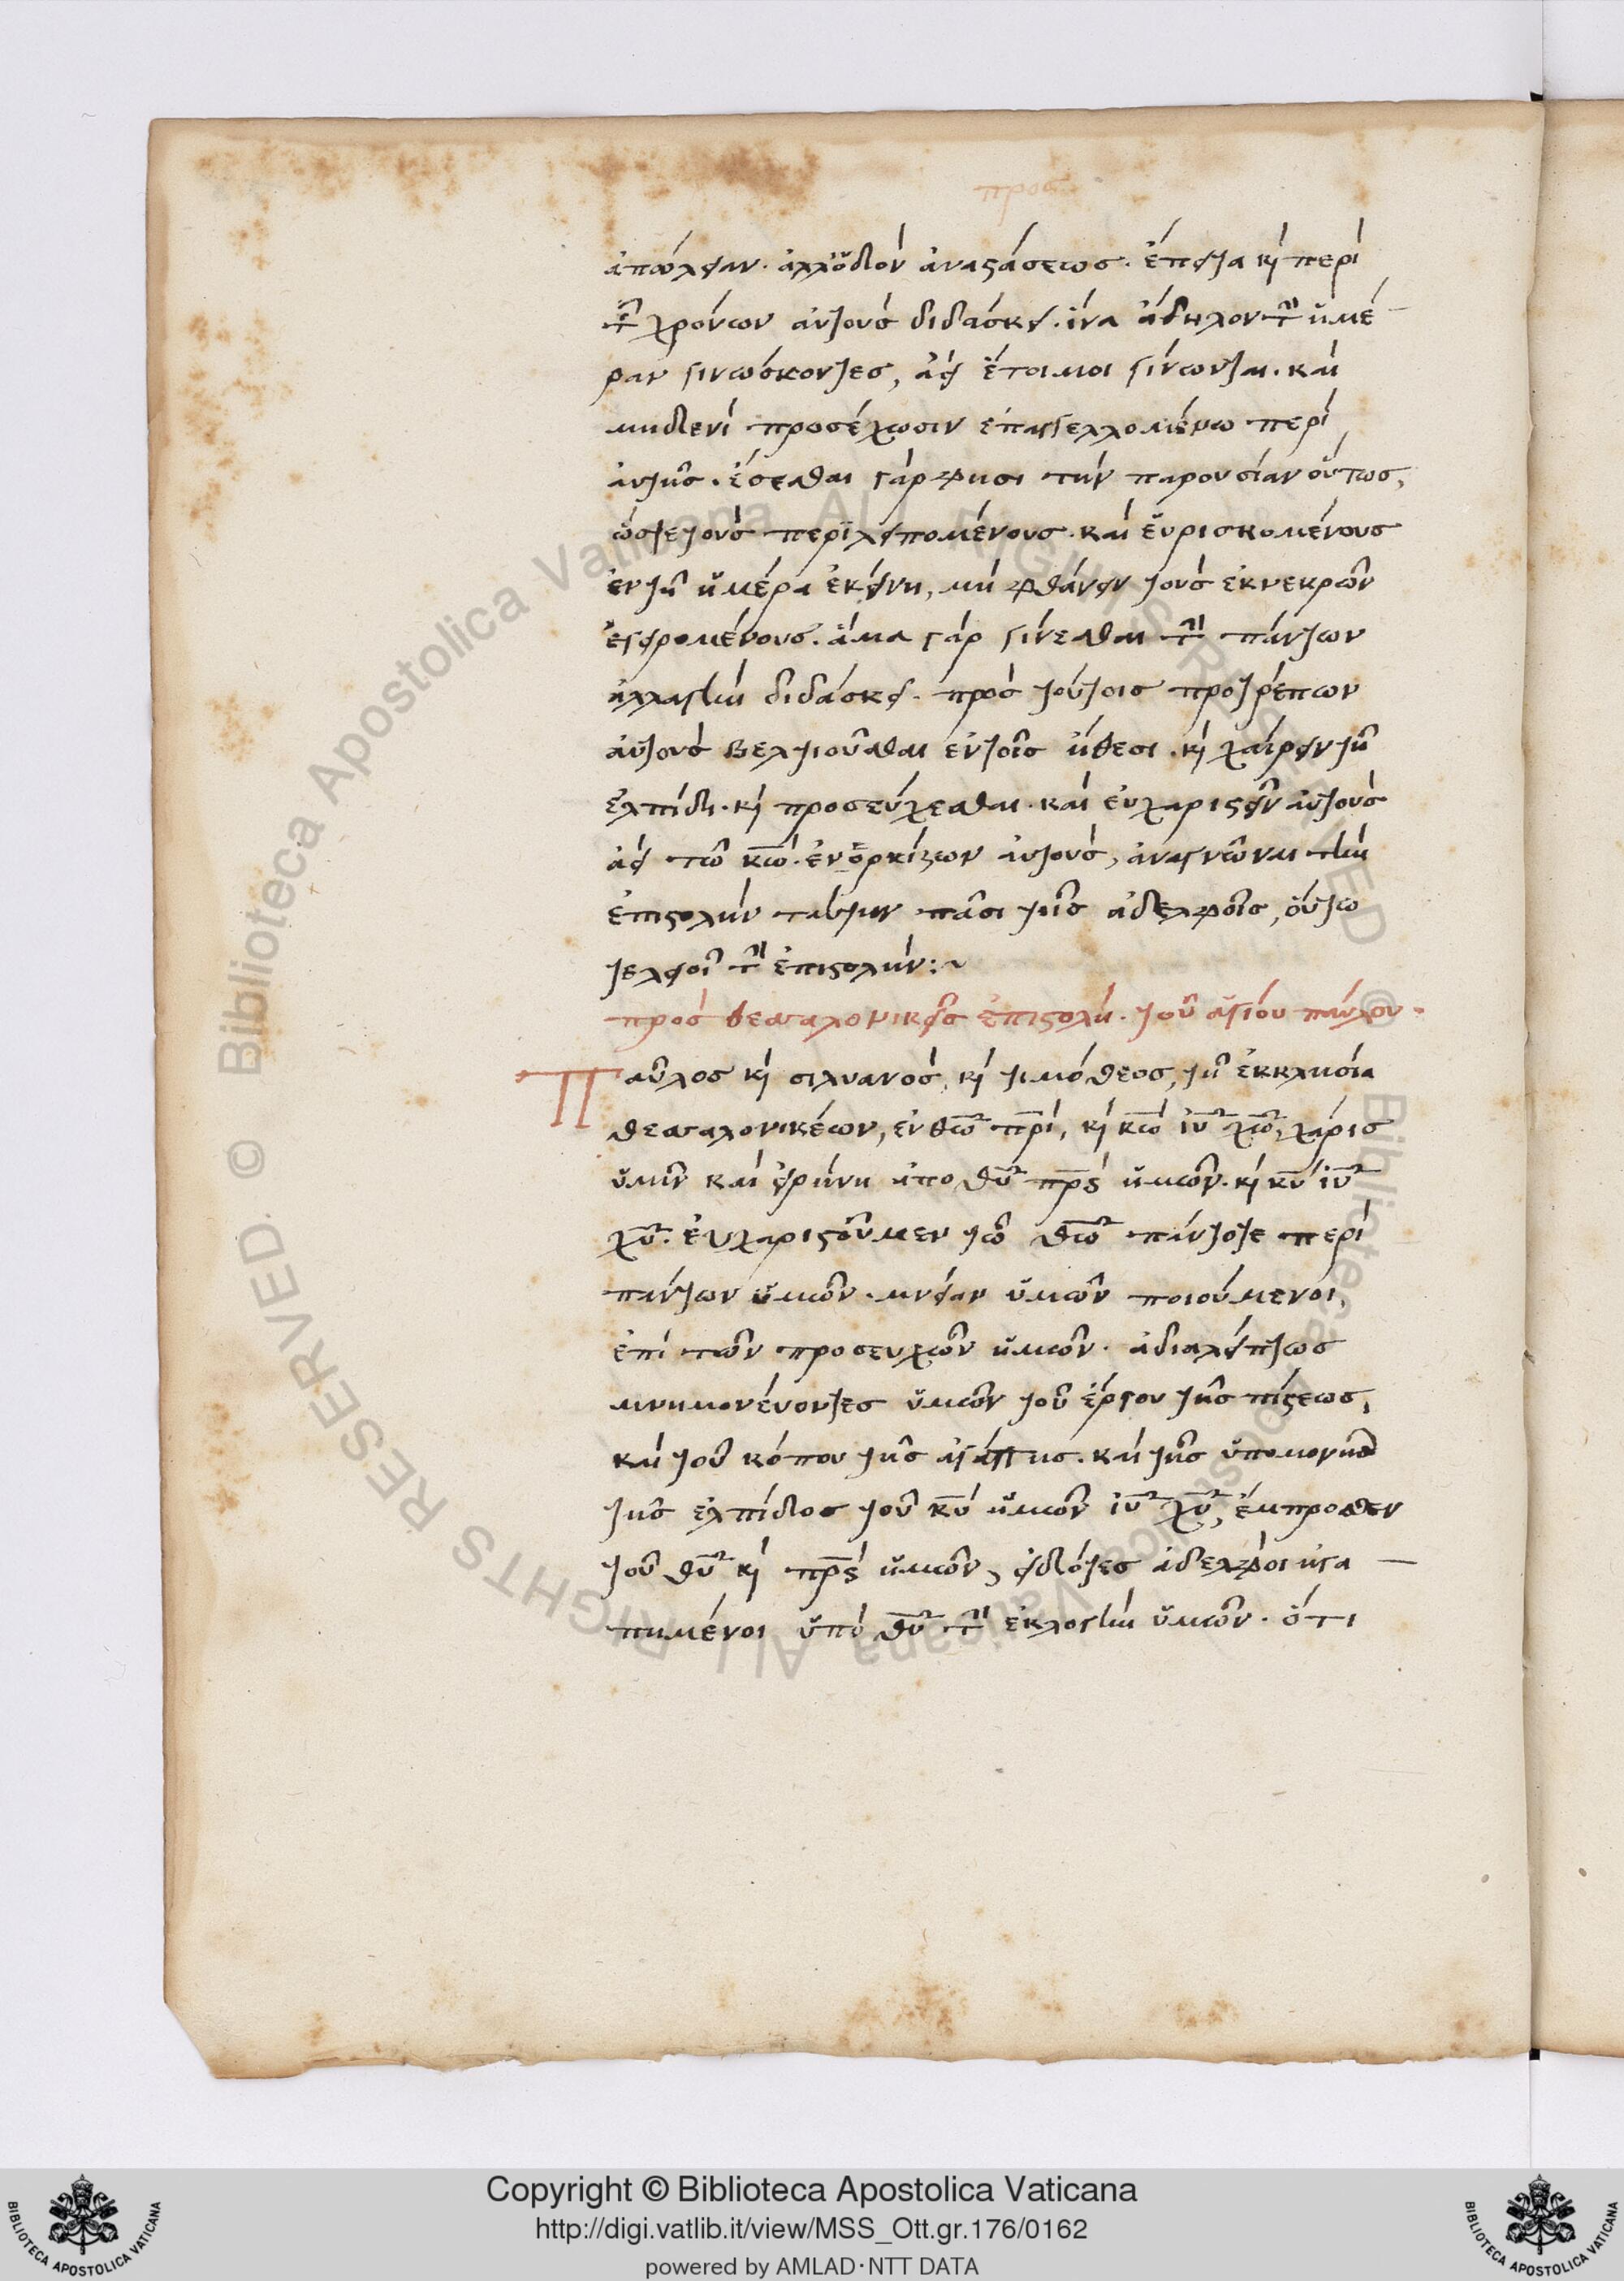 προσ
ἀπώλειαν. ἀλλ' ὁδὸν ἀναστάσεως. ἔπειτα κὶ περὶ
τ̅ χρόνων αὐτοὺς διδάσκει. ἵνα ἄδηλον τ̅ ἡμέ
ραν γινώσκοντες, ἀεὶ ἕτοιμοι γίνωνται. καὶ
μηδενὶ προσέχωσιν ἐπαγγελλομένω περὶ
αὐτῆς. ἔσεσθαι γάρ φησι τὴν παρουσίαν οὕτως,
ὥστε τοὺς περϊλειπομένους. καὶ εὑρισκομένους
ἐν τῆ ἡμέρα ἐκείνη, μὴ φθάνειν τοὺς ἐκ νεκρῶν
ἐγειρομένους. ἅμα γὰρ γίνεσθαι τ̅ πάντων
ἀλλαγὴν διδάσκει. πρὸς τούτοις προτρέπων
αὐτοὺς βελτιοῦσθαι ἐν τοῖς ἤθεσι. κὶ χαίρειν τῆ
ἐλπίδι. κὶ προσεύχεσθαι. καὶ εὐχαριστεῖν αὐτοὺς
ἀεὶ τῶ κ̅ω̅. ἐνορκίζων αὐτοὺς, ἀναγνῶναι τὴν
ἐπιστολὴν ταύτην πᾶσι τοῖς ἀδελφοῖς, οὕτω
τελειοῖ τ̅ ἐπιστολήν:~
πρὸς θεσσαλονικεῖς ἐπιστολὴ. τοῦ ἁγίου παύλου.
Παῦλος κὶ σιλυανός, κὶ τιμόθεος, τῆ ἐκκλησία
θεσσαλονικέων, ἐν θ̅ω̅ π̅ρ̅ι̅, κὶ κ̅ω̅ ι̅υ̅ χ̅ω̅, χάρις
ὑμῖν καὶ εἰρήνη ἀπο θ̅υ̅ π̅ρ̅ς̅ ἡμῶν. κὶ κ̅υ̅ ι̅υ̅
χ̅υ̅. εὐχαριστοῦμεν τῶ θ̅ω̅ πάντοτε περὶ
πάντων ὑμῶν. μνείαν ὑμῶν ποιούμενοι,
ἐπὶ τῶν προσευχῶν ἡμῶν. ἀδιαλείπτως
μνημονεύοντες ὑμῶν τοῦ ἔργου τῆς πίστεως,
καὶ τοῦ κόπου τῆς ἀγάπης. καὶ τῆς ὑπομονῆς
τῆς ἐλπίδος τοῦ κ̅υ̅ ἡμῶν ι̅υ̅ χ̅υ̅, ἔμπροσθεν
τοῦ θ̅υ̅ κὶ π̅ρ̅ς̅ ἡμῶν, εἰδότες ἀδελφοὶ ἠγα
πημένοι ὑπὸ θ̅υ̅ τ̅ ἐκλογὴν ὑμῶν. ὅτι
© Biblioteca Apostolica Vaticana ALL RIGHTS RESERVED
© Biblioteca Apostolica Vaticana ALL RIGHTS RESERVED.
Copyright © Biblioteca Apostolica Vaticana
http://digi.vatlib.it/view/MSS_Ott.gr.176/0162
powered by AMLAD·NTT DATA
BIBLIOTECA APOSTOLICA VATICANA
BIBLIOTECA APOSTOLICA VATICANA